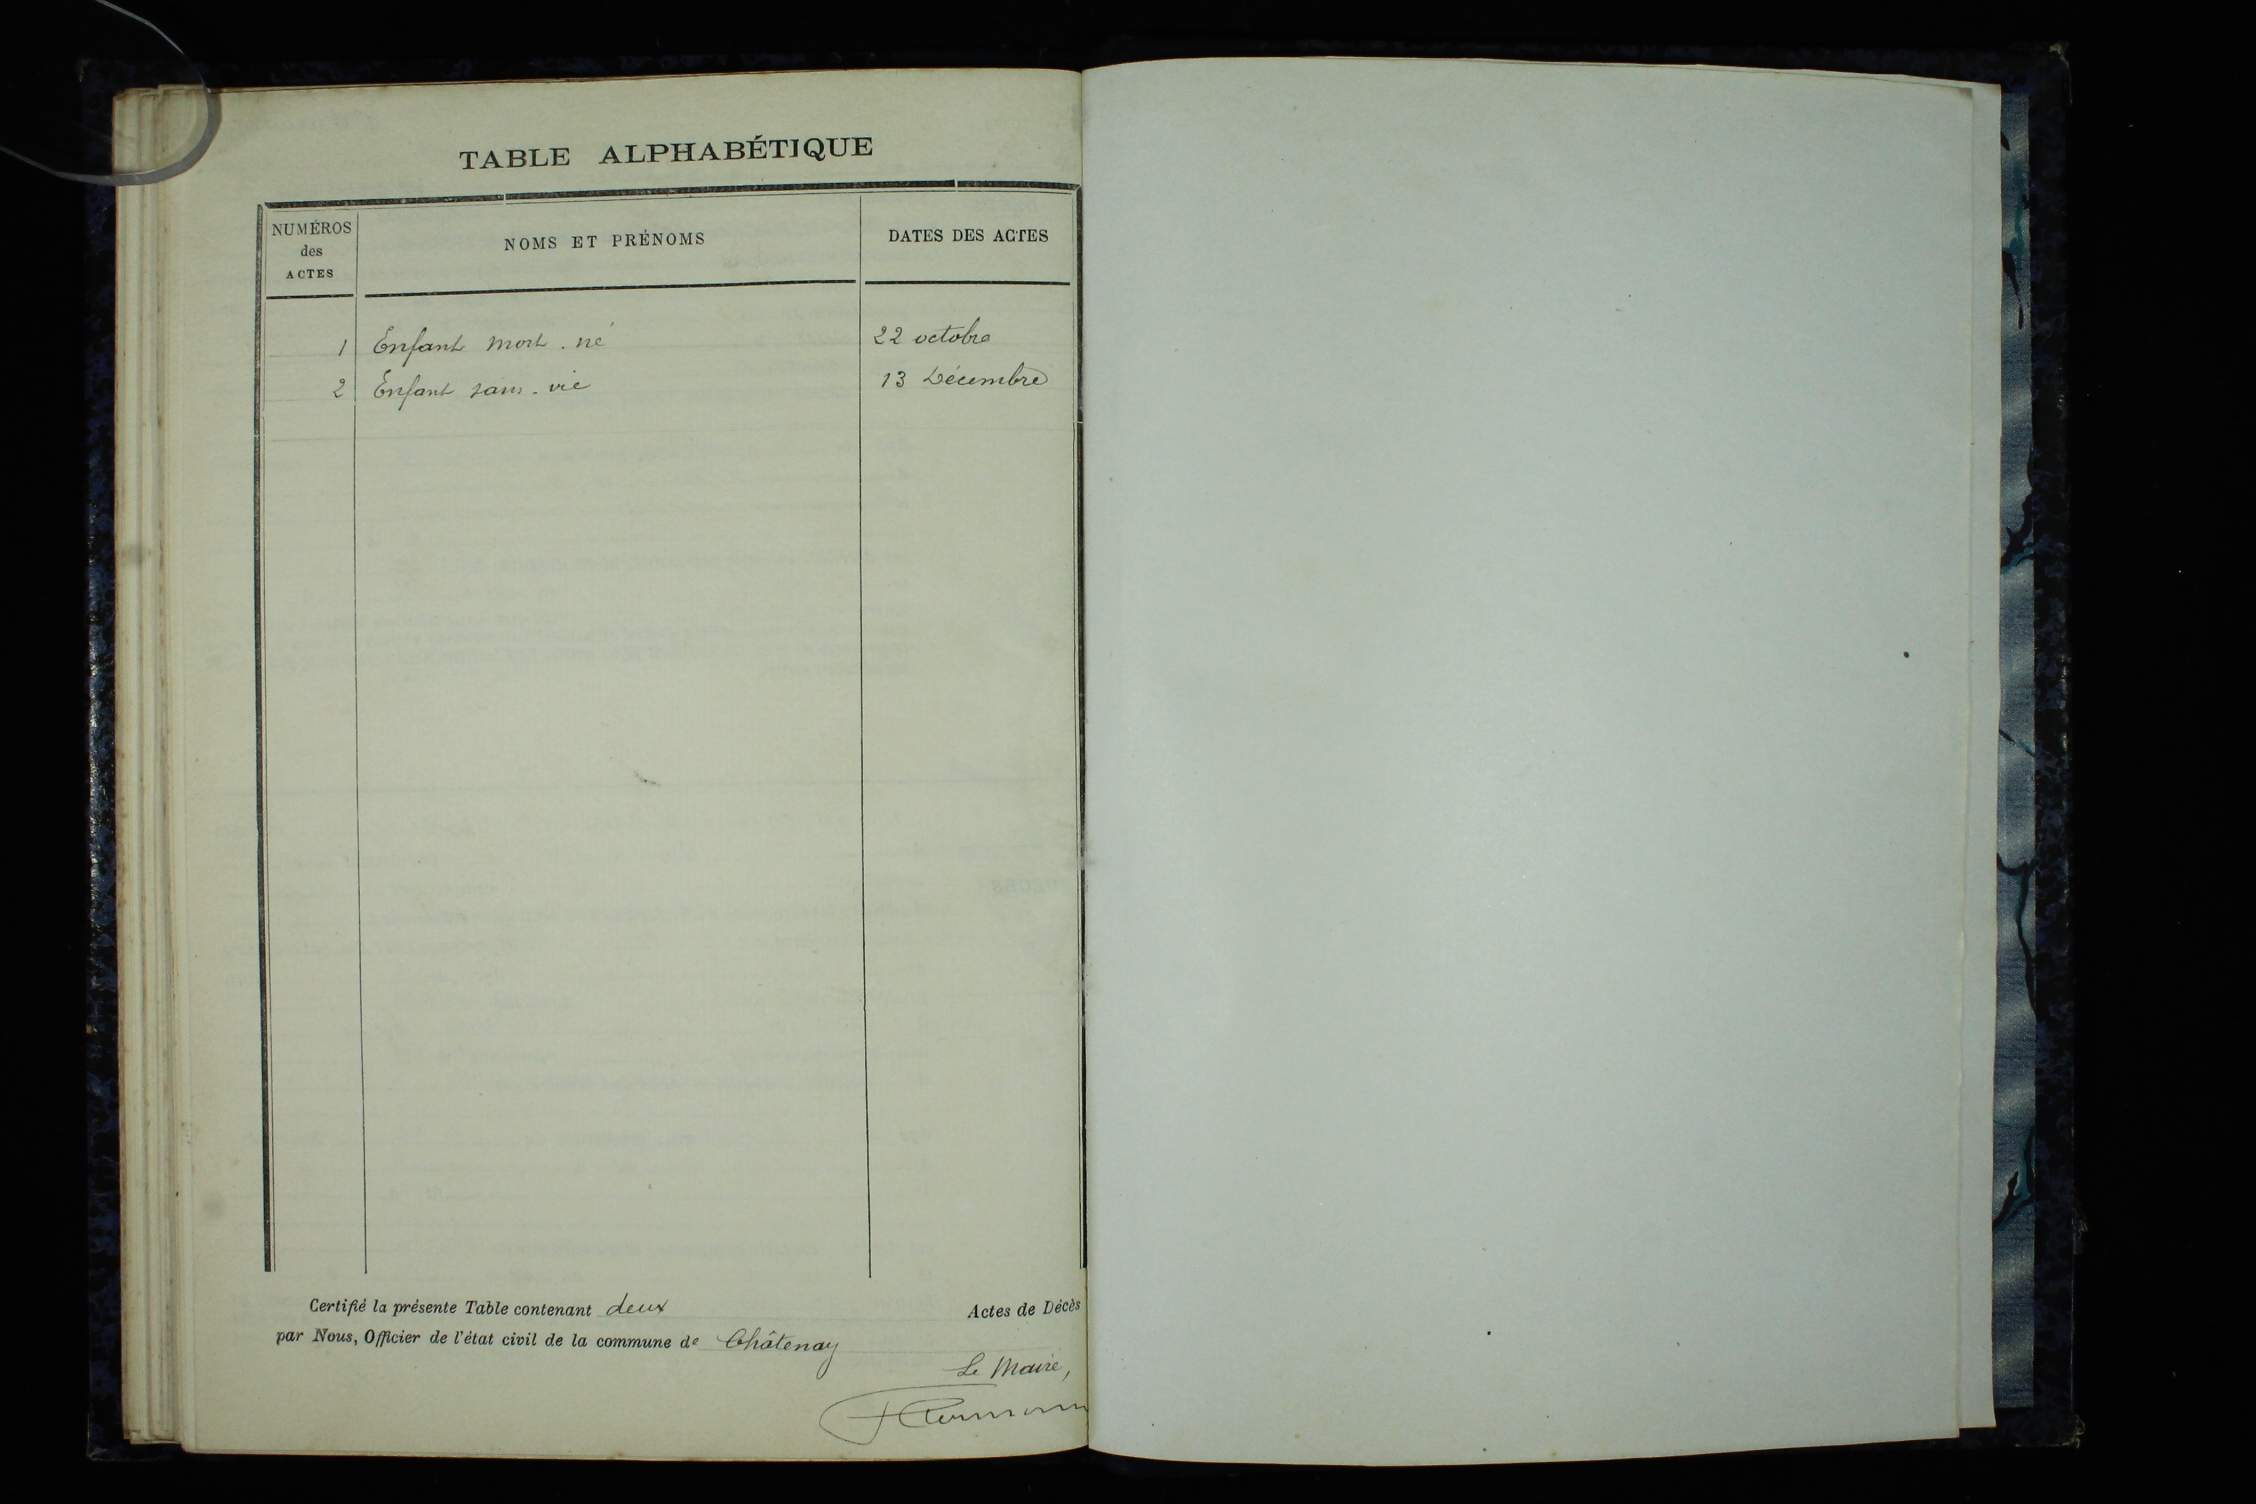 TABLE ALPHABÉTIQUE
NUMÉROS
des
ACTES
NOMS ET PRÉNOMS
DATES DES ACTES
1 Enfant mort-né 22 octobre
2 Enfant sans-vie 13 Décembre
Certifié la présente Table contenant deux Actes de Décès
par Nous, Officier de l'état civil de la commune de Châtenay
Le Maire,